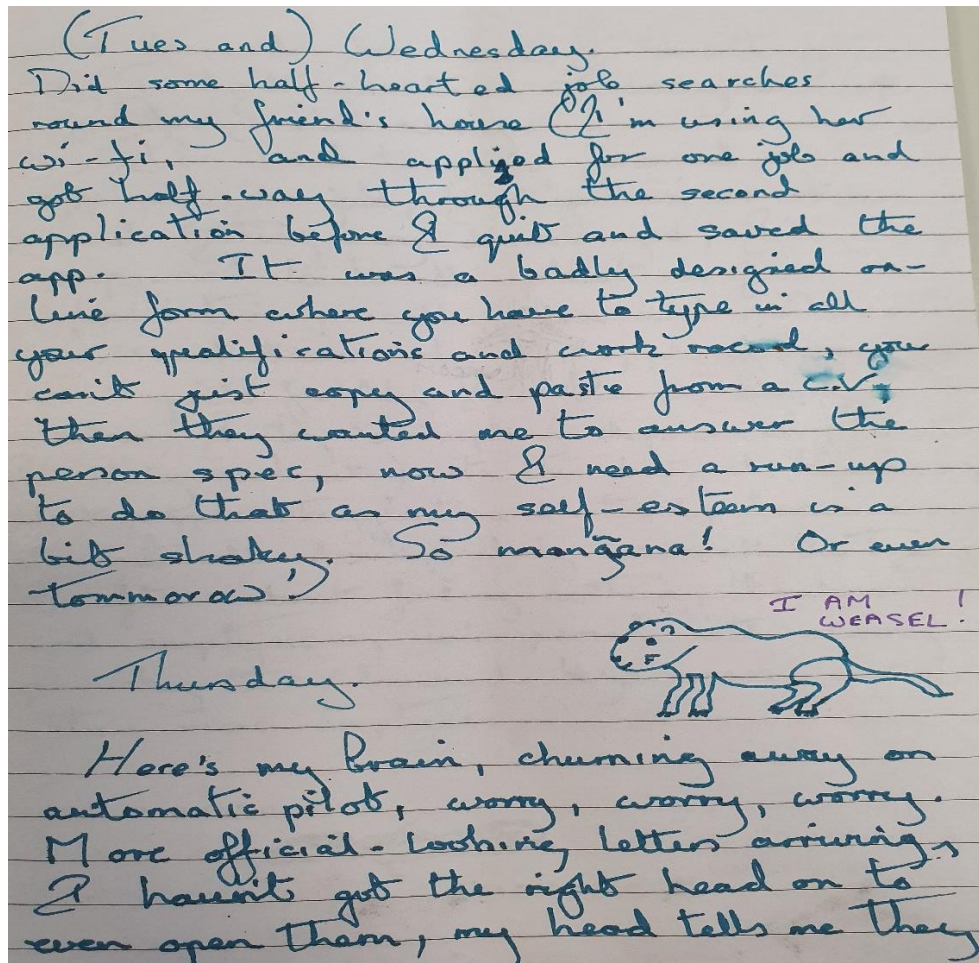 (Tues and) Wednesday.
Did some half-hearted job searches
round my friend's house (I'm using her
wi-fi, and applied for one job and
got half-way through the second
application before I quit and saved the
app. It was a badly designed on-
line form where you have to type in all
your qualifications and work record, you
can't just copy and paste from a C.V,
then they wanted me to answer the
person spec, now I need a run-up
to do that as my self-esteem is a
bit shakey. So mañana! Or even
tommorow!
I AM
WEASEL!
Thursday.
Here's my brain, churning away on
automatic pilot, worry, worry, worry.
More official-looking letters arriving,
I haven't got the right head on to
even open them, my head tells me they